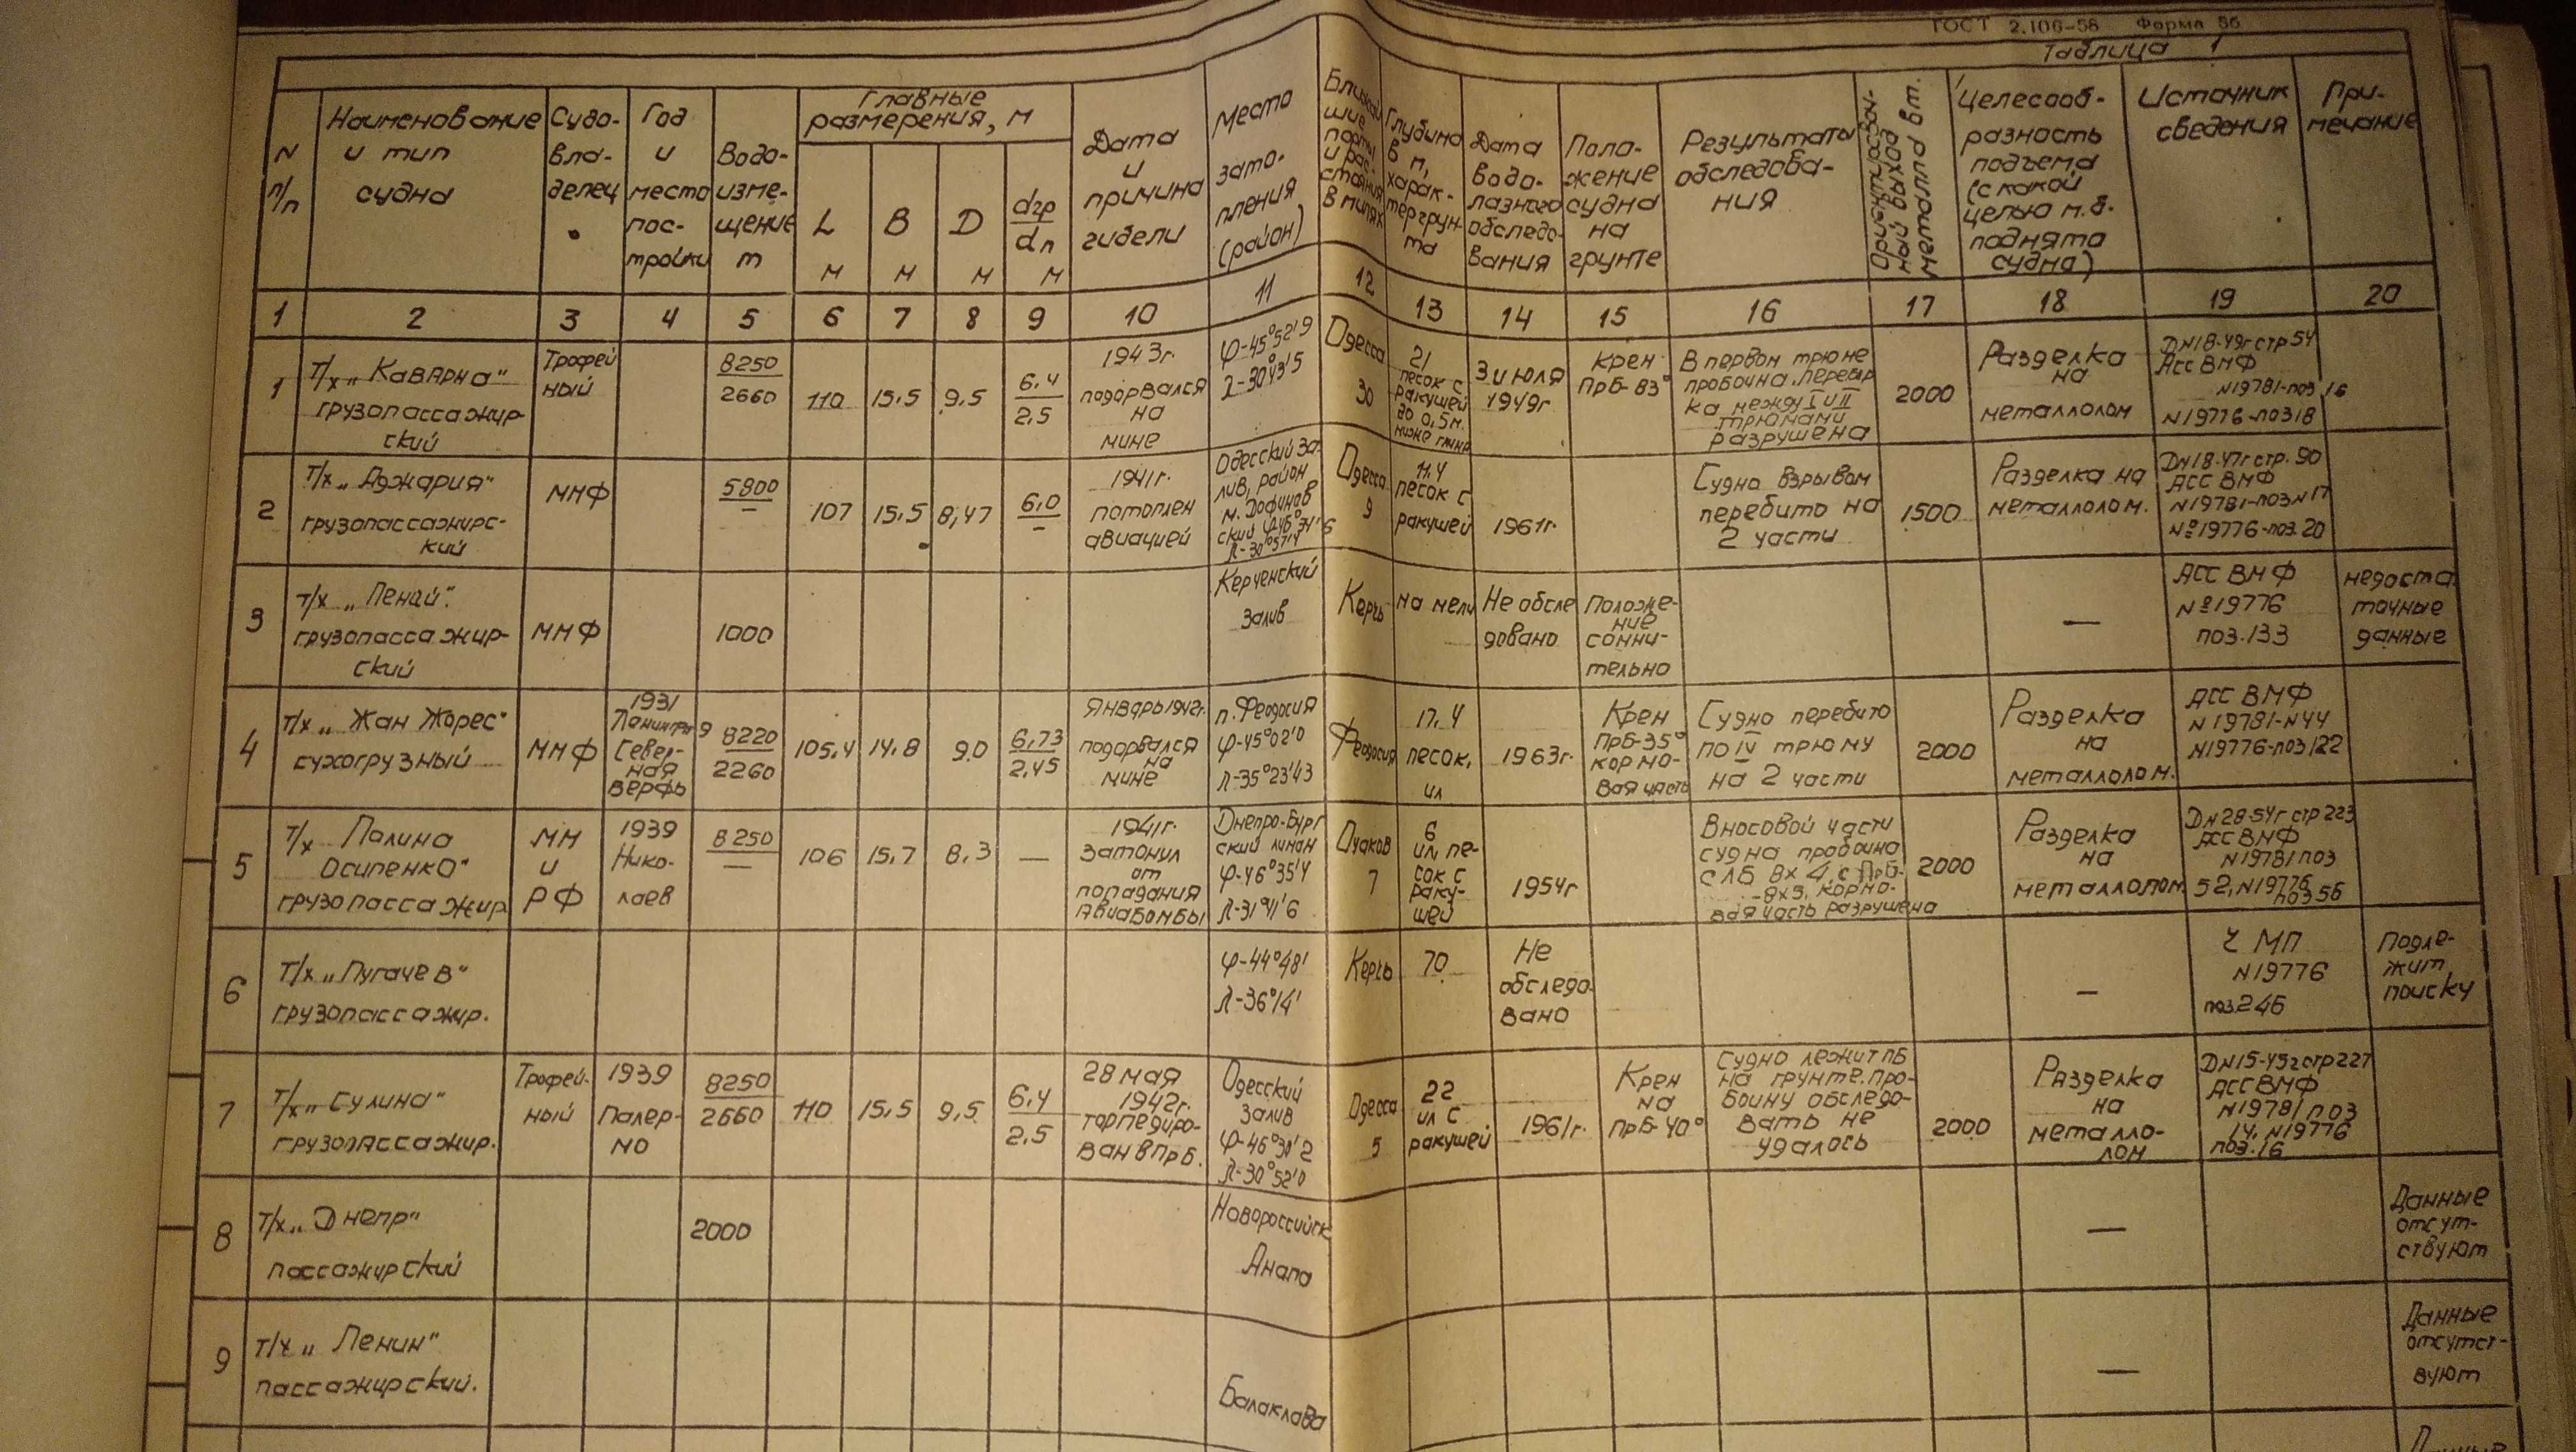 ГОСТ 2.106-58 Форма 5б
Таблица 1
N п/п
Наименование и тип судна
Судовладелец
Год и место постройки
Водоизмещение т
Главные размерения, м
L м
B м
D м
dгр/dп м
Дата и причина гибели
Место затопления (район)
Ближайшие порты и расстояния в милях
Глубина в м, характер грунта
Дата водолазного обследования
Положение судна на грунте
Результаты обследования
Ориентировочный выход металла в т.
Целесообразность подъема (с какой целью м.б. поднято судно)
Источник сведения
Примечание
1 2 3 4 5 6 7 8 9 10 11 12 13 14 15 16 17 18 19 20
1
т/х „Каварна"
грузопассажир-
ский
Трофей
ный
8250
2660
110
15,5
9,5
6,4
2,5
1943г.
подорвался
на
мине
φ-45°52'9
λ-30°43'5
Одесса
30
21
песок с
ракушей
до 0,5м.
ниже
3 июля
1949г
Крен
ПрБ-83°
В первом трюме
пробоина, перебор
ка между I и II
трюмами
разрушена
2000
Разделка
на
металлолом
DN18-49г стр 54
АСС ВМФ
N19781-поз 16
N19776-поз18
2
т/х „Аджария"
грузопассажирс-
кий
ММФ
5800
—
107
15,5
8,47
6,0
—
1941г.
потоплен
авиацией
Одесский за-
лив, район
м. Дофинов
ский
Одесса
9
11,4
песок с
ракушей
1961г.
Судно взрывом
перебито на
2 части
1500
Разделка на
металлолом.
DN18-47г стр. 90
АСС ВМФ
N19781-поз N17
№19776-поз.20
3
т/х „Пенай".
грузопассажир-
ский
ММФ
1000
Керченский
залив
Керчь
на мели
Не обсле
довано
Положе-
ние
сомни-
тельно
—
АСС ВМФ
№19776
поз.133
недоста
точные
данные
4
т/х „Жан Жорес"
сухогрузный
ММФ
1931
Ленинград
Север-
ная
верфь
8220
2260
105,4
14,8
9,0
6,73
2,45
Январь 1942г.
подорвался
на
мине
п. Феодосия
φ-45°02'0
λ-35°23'43
Феодосия
17,4
песок,
ил
1963г.
Крен
ПрБ-35°
кормо-
вая часть
Судно перебито
по IV трюму
на 2 части
2000
Разделка
на
металлолом.
АСС ВМФ
N19781-N44
N19776-поз122
5
т/х Полина
Осипенко"
грузопассажир
ММ
и
РФ
1939
Нико-
лаев
8250
—
106
15,7
8,3
—
1941г.
Затонул
от
попадания
авиабомбы
Днепро-Буг
ский лиман
φ-46°35'4
λ-31°11'6
Очаков
7
6
ил, пе-
сок с
раку-
шей
1954г
В носовой части
судна пробоина
с ЛБ 8х4, с ПрБ-
-8х3, кормо-
вая часть разрушена
2000
Разделка
на
металлолом.
DN28-54г стр 223
АСС ВМФ
N19781 поз
52, N19776
поз 56
6
т/х „Пугачев"
грузопассажир.
φ-44°48'
λ-36°14'
Керчь
70
Не
обследо-
вано
—
ЧМП
N19776
поз.246
Подле-
жит
поиску
7
т/х „Сулина"
грузопассажир.
Трофей-
ный
1939
Палер-
мо
8250
2660
110
15,5
9,5
6,4
2,5
28 мая
1942г.
торпедиро-
ван в ПрБ.
Одесский
залив
φ-46°30'2
λ-30°52'0
Одесса
5
22
ил с
ракушей
1961г.
Крен
на
ПрБ-40°
Судно лежит ПБ
на грунте. Про-
боину обследо-
вать не
удалось
2000
Разделка
на
металло-
лом
DN15-45г стр 227
АСС ВМФ
N19781 поз
14, N19776
поз.16
8
т/х „Днепр"
пассажирский
2000
Новороссийск
Анапа
—
Данные
отсут-
ствуют
9
т/х „Ленин"
пассажирский.
Балаклава
—
Данные
отсутст-
вуют